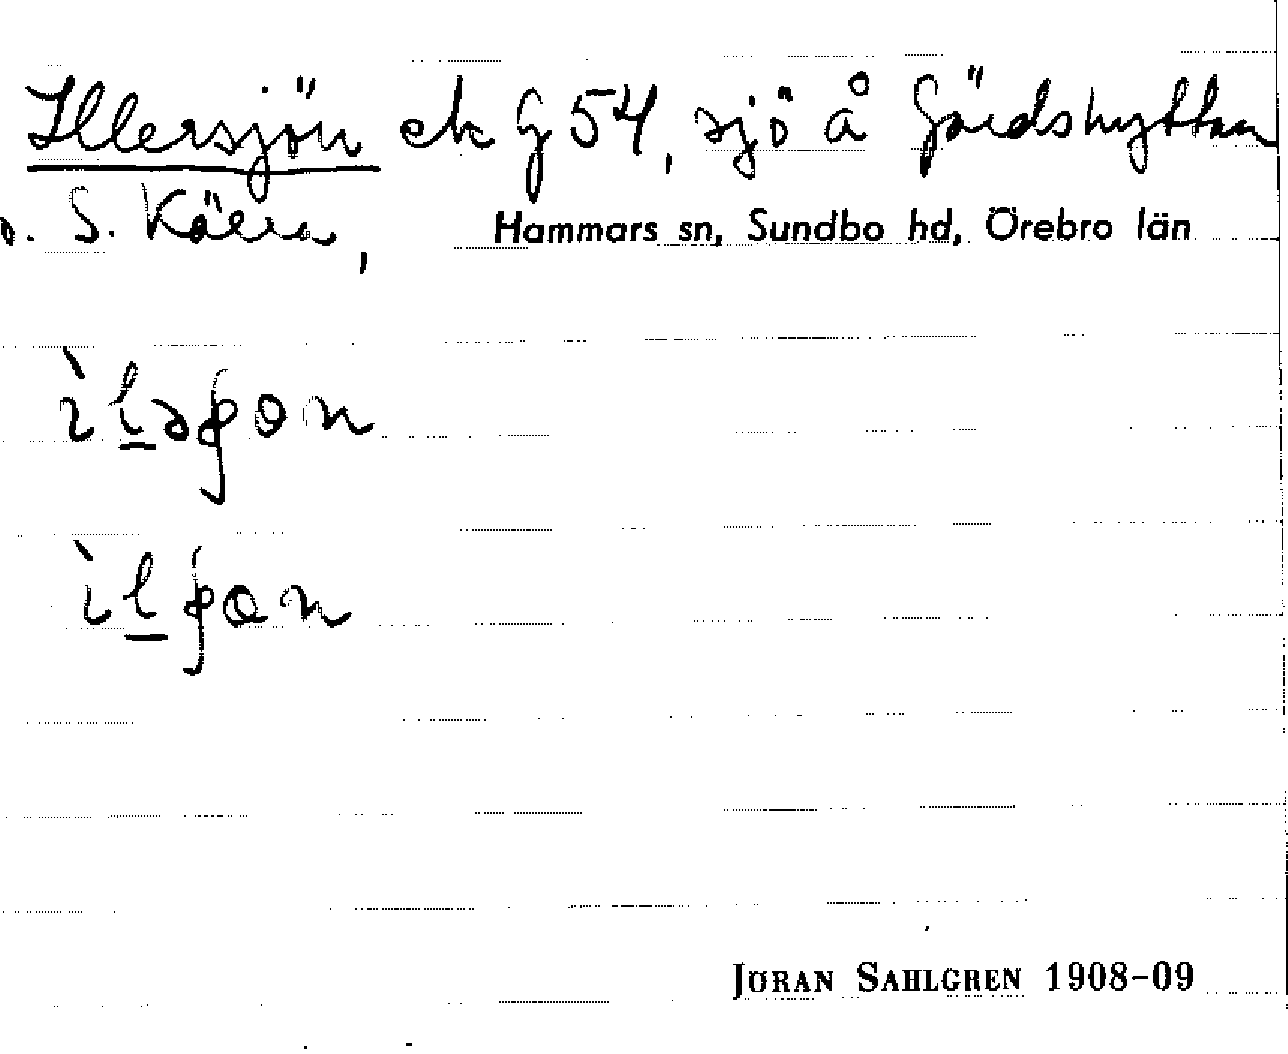 Illersjön ek G 54, sjö å Gärdshyttan
o. S. Kärra, Hammars sn, Sundbo hd, Örebro län
JÖRAN SAHLGREN 1908-09